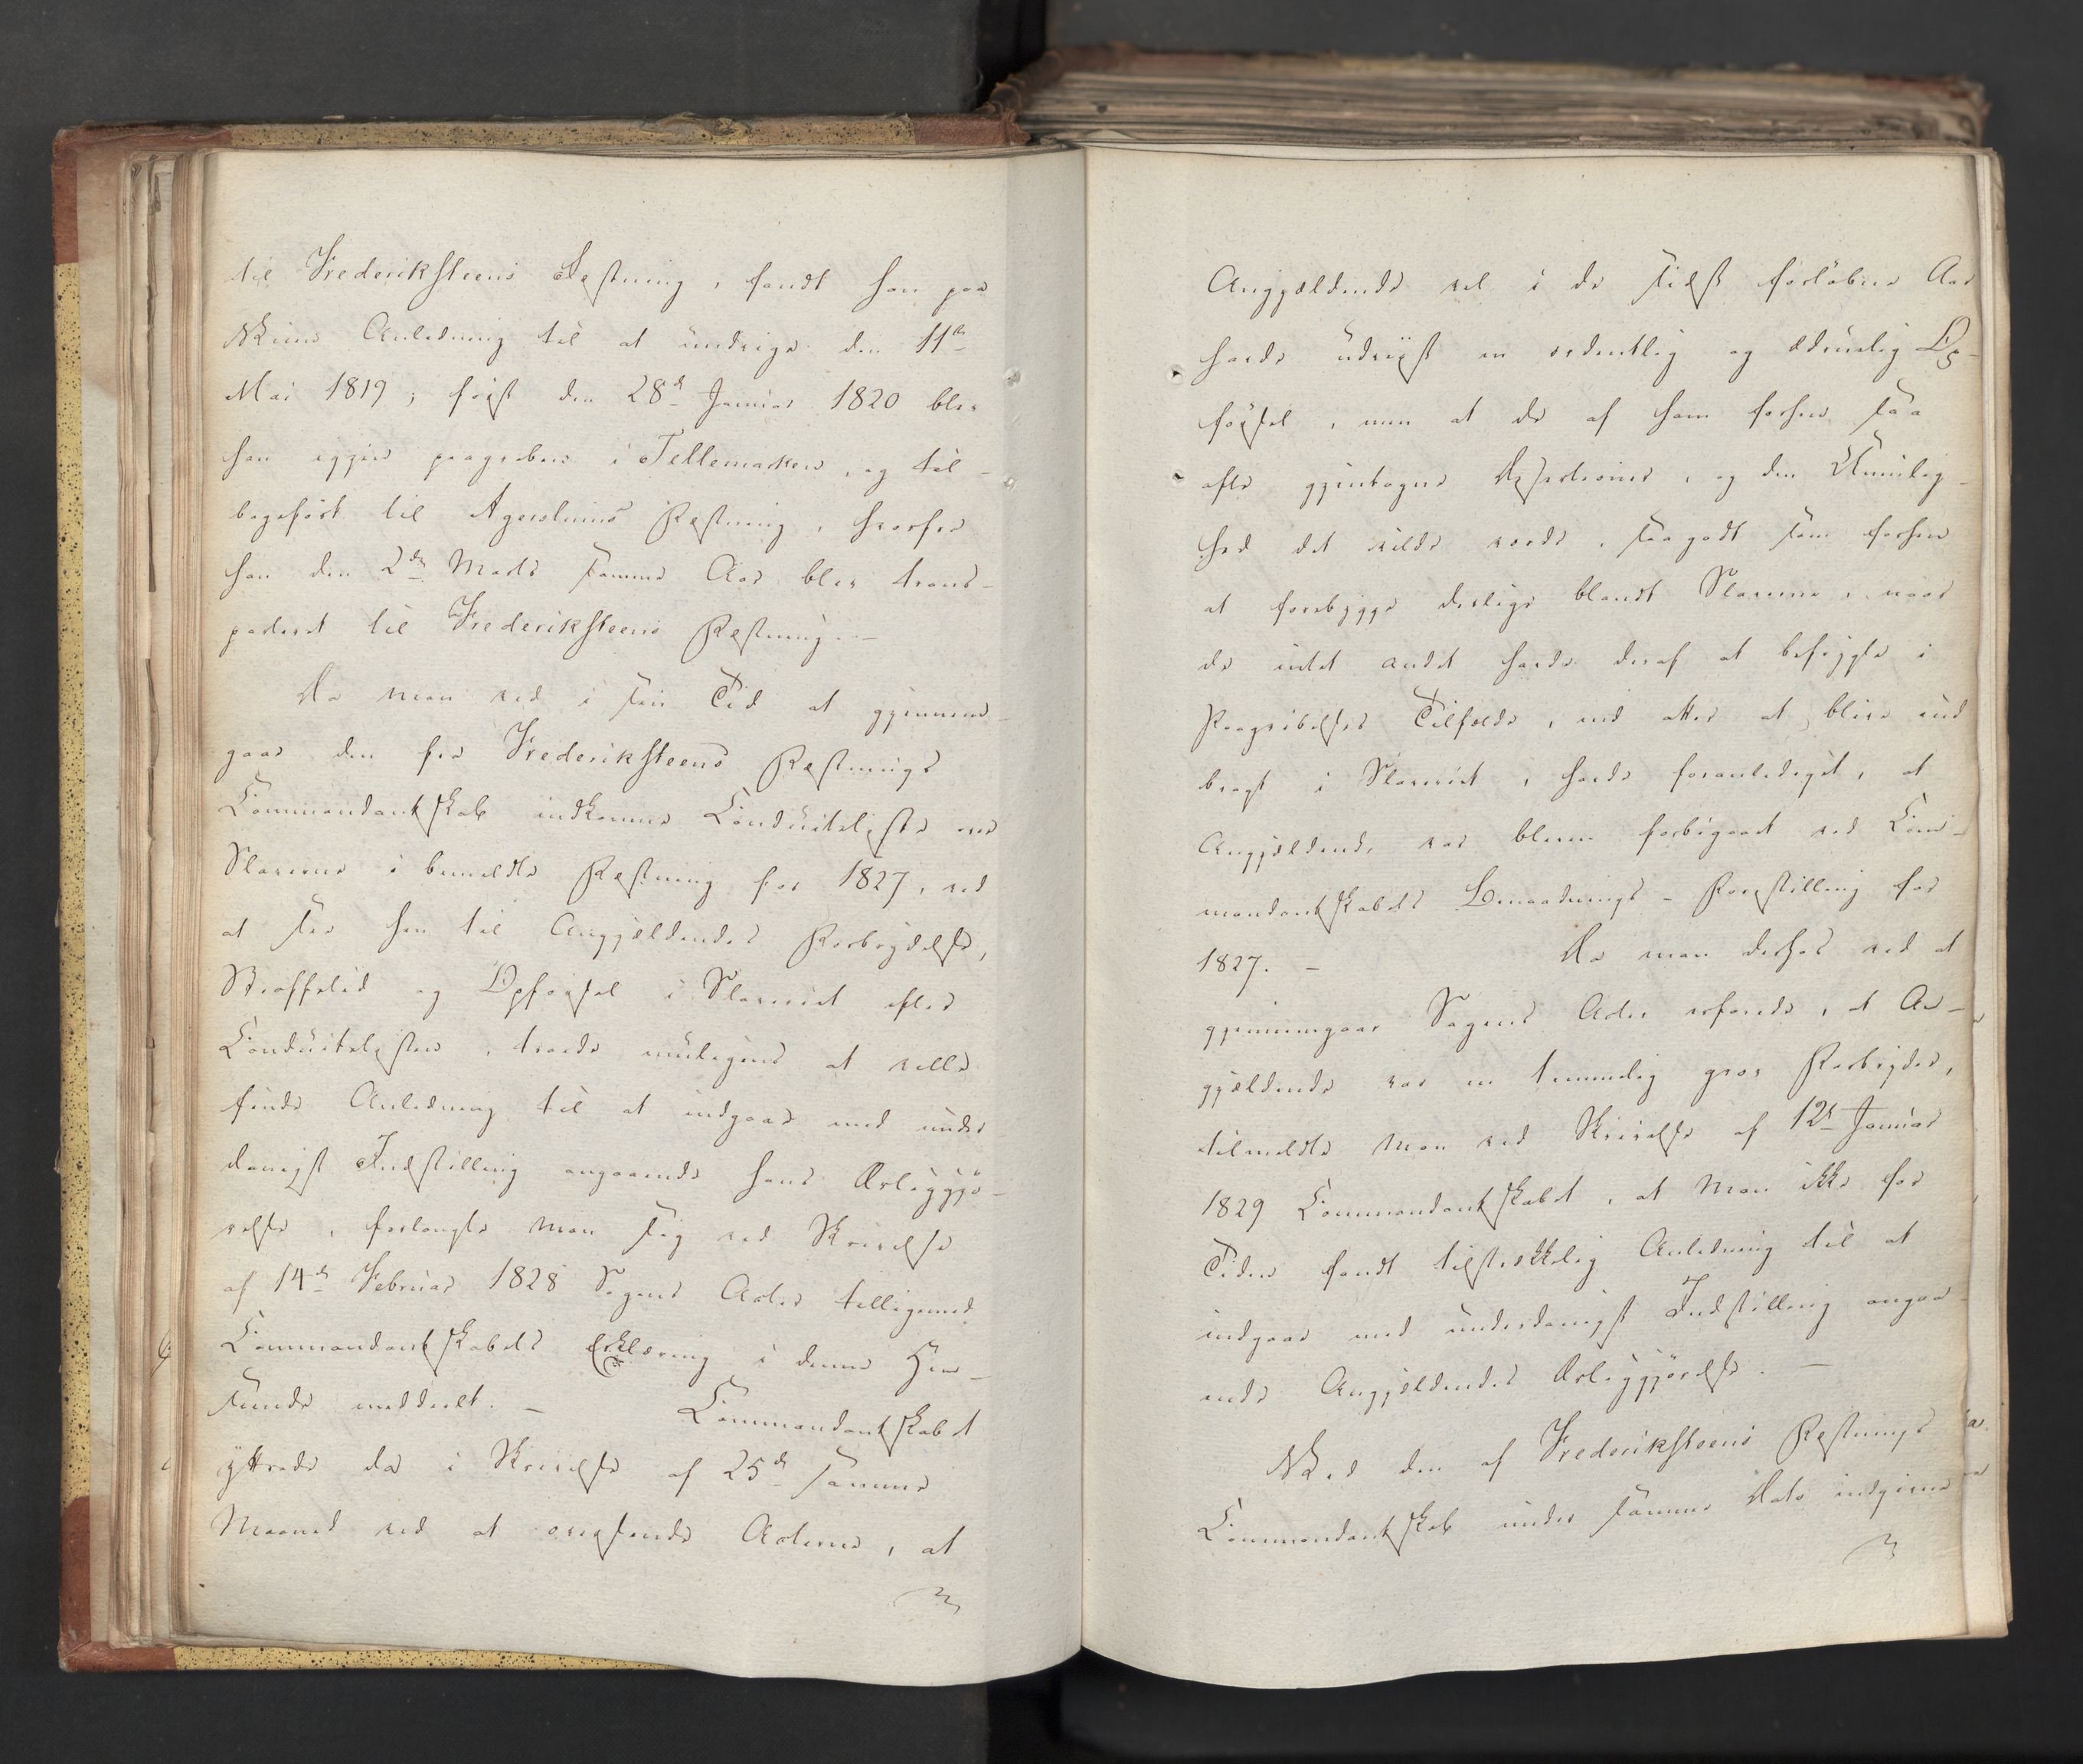 til Frederiksteens Fæstning, fandt han paa
Veien Anledning til at undvige den 11te
Mai 1819; først den 28de Januar 1820 blev
han igjen paagreben i Tellemarken, og til-
bageført til Agershuus Fæstning, hvorfra
han den 2den Marts samme Aar blev trans-
porteret til Frederiksteens Fæstning. –
Da man ved i sin Tid at gjennem-
gaae den fra Frederiksteens Fæstnings
Commandantskab indkomne Conduiteliste over
Slaverne i bemeldte Fæstning for 1827, ved
at see hen til Angjældendes Forbrydelse,
Straffetid og Opførsel i Slaveriet efter
Conduitelisten, troede muligens at ville
finde Anledning til at indgaae med under
danigst Indstilling angaaende hans Løsliggjø-
relse, forlangte man sig ved Skrivelse
af 14de Februar 1828 Sagens Acter tilligemed
Commandantskabets Erklæring i denne Hen-
seende meddeelt. – Commandantskabet
yttrede da i Skrivelse af 25de samme
Maaned ved at oversende Acterne, at
Angjældende vel i de sidst forløbne Aar
havde udviist en ordentlig og ædruelig Op-
førsel, men at de af ham forhen saa
ofte gjentagne Desertioner, og den Umulig-
hed det vilde være, saagodt som forhen
at forebygge deslige blandt Slaverne, naar
de intet andet havde deraf at befrygte i
Paagribelses Tilfælde, end atter at blive ind
bragt i Slaveriet, havde foranlediget, at
Angjældende var bleven forbigaaet ved Com-
mandantskabets Benaadnings-Forestilling for
1827. – Da man derhos ved at
gjennemgaae Sagens Acter erfarede, at An-
gjældende var en temmelig grov Forbryder,
tilmeldte man ved Skrivelse af 12te Januar
1829 Commandantskabet, at Man ikke for
Tiden fandt tilstrækkelig Anledning til at
indgaae med underdanigst Indstilling angaa-
ende Angjældendes Løsliggjørelse. –
Ved den af Frederiksteens Fæstnings
Commandantskab under samme Dato indgivne